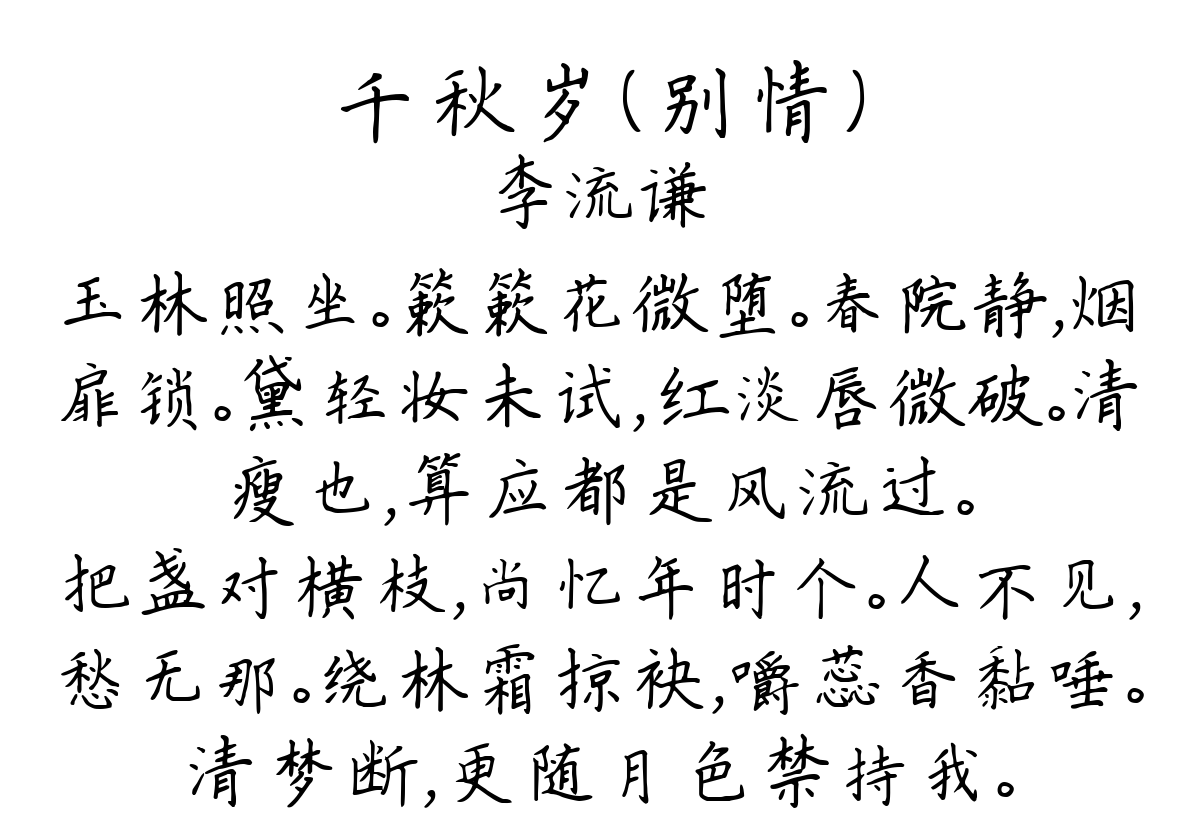 千秋岁(别情)
李流谦
玉林照坐。簌簌花微堕。春院静,烟
扉锁。黛轻妆未试,红淡唇微破。清
瘦也,算应都是风流过。
把盏对横枝,尚忆年时个。人不见,
愁无那。绕林霜掠袂,嚼蕊香黏唾。
清梦断,更随月色禁持我。